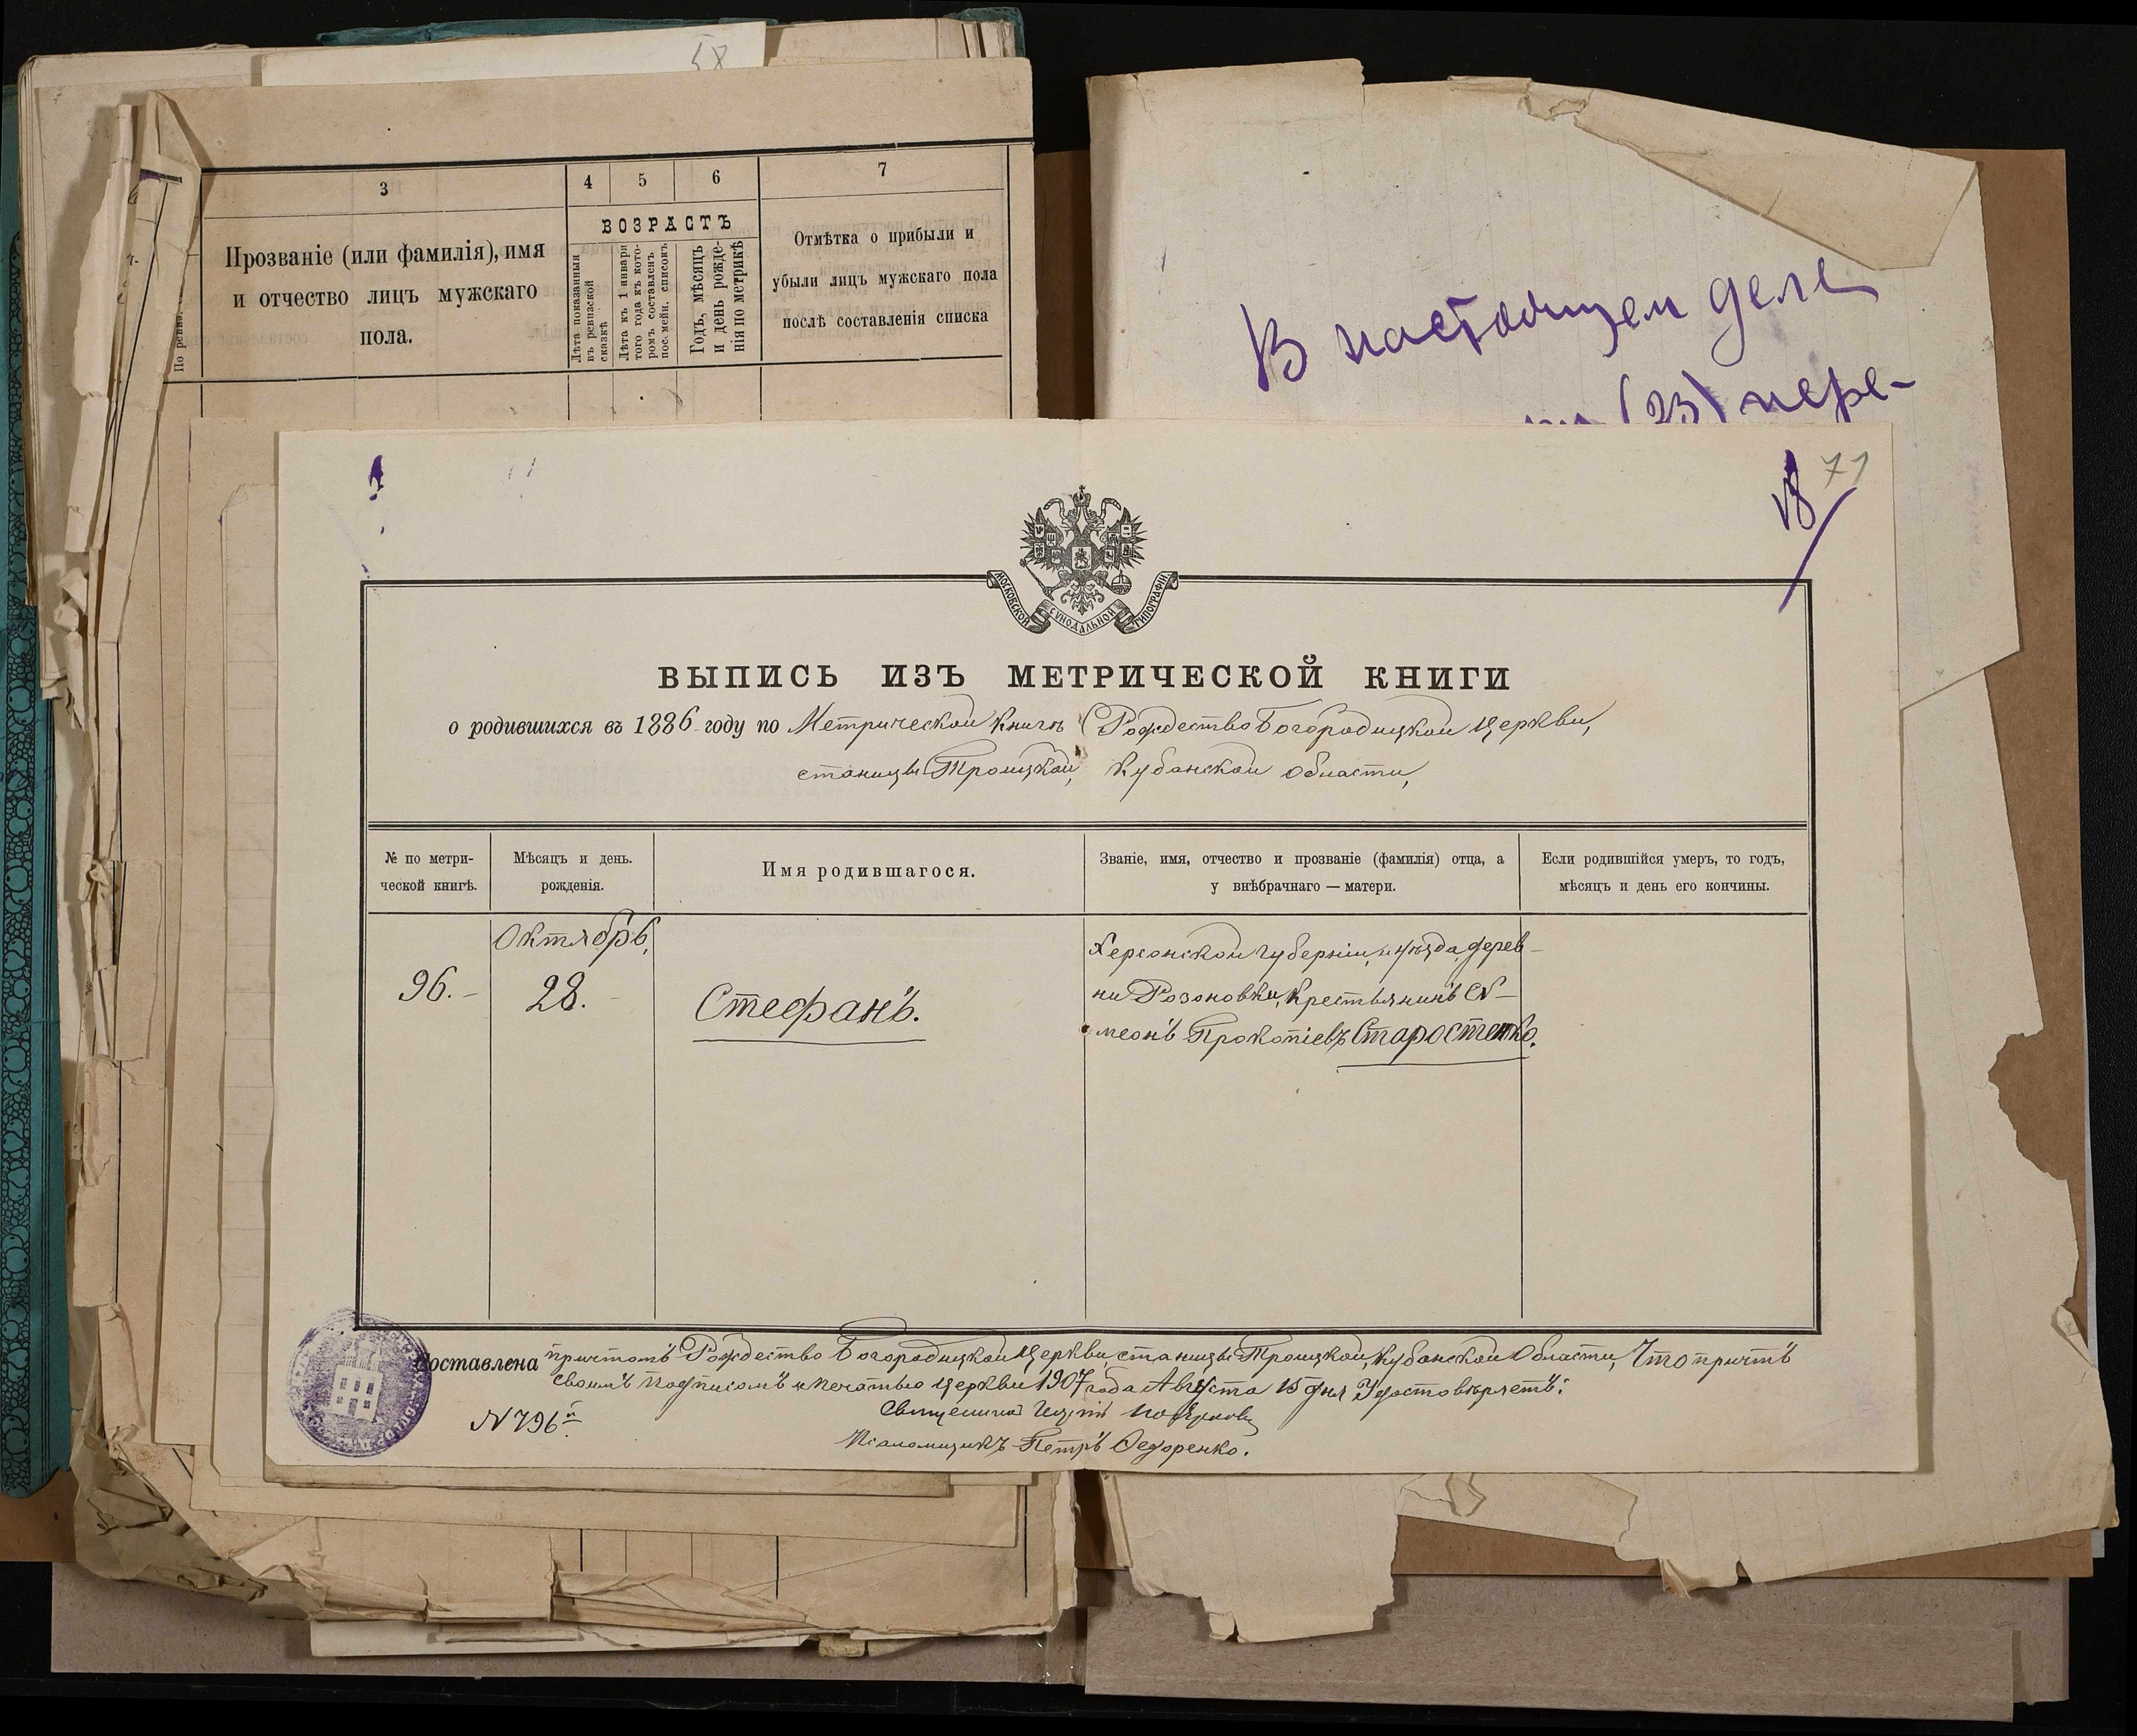 58
3
4
5
6
7
ВОЗРАСТЪ
Прозваніе (или фамилія), имя
и отчество лицъ мужскаго
пола.
По ревиз.
Лѣта показанныя
въ ревизской
сказкѣ
Лѣта къ 1 января
того года къ кото-
ромъ составленъ
пос. мейн. списокъ
Годъ, мѣсяцъ
и день рожде-
нія по метрикѣ
Отмѣтка о прибыли и
убыли лицъ мужскаго пола
послѣ составленія списка
В настоящем деле
(23) пере-
71
18
МОСКОВСКОЙ СѴНОДАЛЬНОЙ ТИПОГРАФІИ
ВЫПИСЬ ИЗЪ МЕТРИЧЕСКОЙ КНИГИ
о родившихся въ 1886 году по Метрической Книгѣ Рождество Богородицкой церкви,
станицы Троицкой, Кубанской области,
№ по метри-
ческой книгѣ.
Мѣсяцъ и день.
рожденія.
Имя родившагося.
Званіе, имя, отчество и прозваніе (фамилія) отца, а
у внѣбрачнаго — матери.
Если родившійся умеръ, то годъ,
мѣсяцъ и день его кончины.
96.
Октябрь,
28.
Стефанъ.
Херсонской губерніи, и уѣзда, дерев-
ни Розоновки, крестьянинъ Сѵ-
меонъ Прокопіевъ Старостенко.
Составлена причтомъ Рождество Богородицкой церкви, станицы Троицкой, Кубанской Области, Что причтъ
своимъ подписомъ и печатью церкви 1907 года Августа 15 дня Удостовѣряетъ:
N 796й
Священникъ
Псаломщикъ Петръ Федоренко.